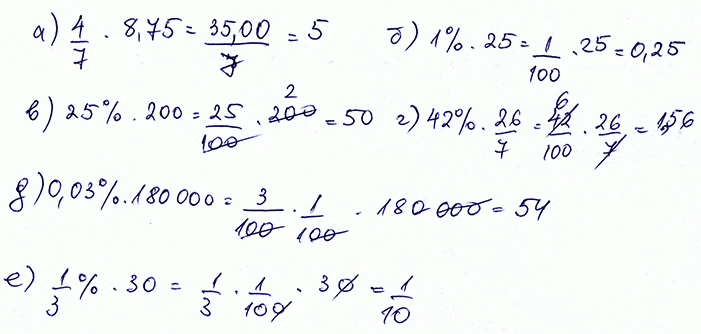 а) 4/7 · 8,75 = 35,00/7 = 5 б) 1% · 25 = 1/100 · 25 = 0,25
в) 25% · 200 = 25/100 · 200 2 = 50 г) 42% · 26/7 = 42 6/100 · 26/7 = 1,56
д) 0,03% · 180 000 = 3/100 · 1/100 · 180 000 = 54
е) 1/3% · 30 = 1/3 · 1/100 · 30 = 1/10